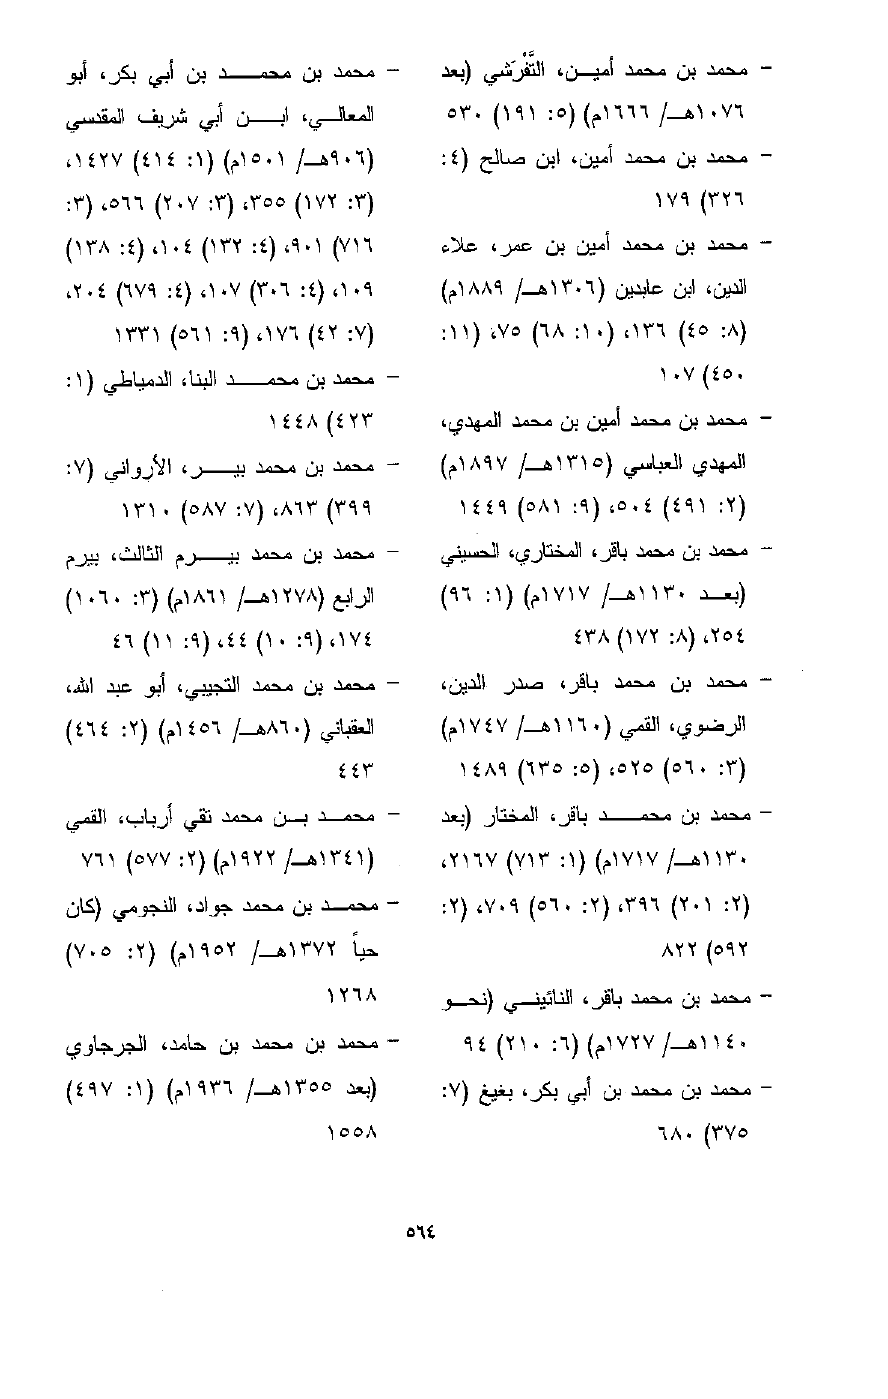 – محمد بن محمد أميـن، التَّفْرَشي (بعد
١٠٧٦هـ/ ١٦٦٦م) (٥: ١٩١) ٥٣٠
– محمد بن محمد أمين، ابن صالح (٤:
٣٢٦) ١٧٩
– محمد بن محمد أمين بن عمر، علاء
الدين، ابن عابدين (١٣٠٦هـ/ ١٨٨٩م)
(٨: ٤٥) ١٣٦، (١٠: ٦٨) ٧٥، (١١:
٤٥٠) ١٠٧
– محمد بن محمد أمين بن محمد المهدي،
المهدي العباسي (١٣١٥هـ/ ١٨٩٧م)
(٢: ٤٩١) ٥٠٤، (٩: ٥٨١) ١٤٤٩
– محمد بن محمد باقر، المختاري، الحسيني
(بعـد ١١٣٠هـ/ ١٧١٧م) (١: ٩٦)
٢٥٤، (٨: ١٧٢) ٤٣٨
– محمد بن محمد باقر، صدر الدين،
الرضوي، القمي (١١٦٠هـ/ ١٧٤٧م)
(٣: ٥٦٠) ٥٢٥، (٥: ٦٣٥) ١٤٨٩
– محمد بن محمـد باقر، المختار (بعد
١١٣٠هـ/ ١٧١٧م) (١: ٧١٣) ٢١٦٧،
(٢: ٢٠١) ٣٩٦، (٢: ٥٦٠) ٧٠٩، (٢:
٥٩٢) ٨٢٢
– محمد بن محمد باقر، النائينـي (نحـو
١١٤٠هـ/ ١٧٢٧م) (٦: ٢١٠) ٩٤
– محمد بن محمد بن أبي بكر، بغيغ (٧:
٣٧٥) ٦٨٠
– محمد بن محمـد بن أبي بكر، أبو
المعالـي، ابـن أبي شريف المقدسي
(٩٠٦هـ/ ١٥٠١م) (١: ٤١٤) ١٤٢٧،
(٣: ١٧٢) ٣٥٥، (٣: ٢٠٧) ٥٦٦، (٣:
٧١٦) ٩٠١، (٤: ١٣٢) ١٠٤، (٤: ١٣٨)
١٠٩، (٤: ٣٠٦) ١٠٧، (٤: ٦٧٩) ٢٠٤،
(٧: ٤٢) ١٧٦، (٩: ٥٦١) ١٣٣١
– محمد بن محمـد البنا، الدمياطي (١:
٤٢٣) ١٤٤٨
– محمد بن محمد بيـر، الأرواني (٧:
٣٩٩) ٨٦٣، (٧: ٥٨٧) ١٣١٠
– محمد بن محمد بيـرم الثالث، بيرم
الرابع (١٢٧٨هـ/ ١٨٦١م) (٣: ١٠٦٠)
١٧٤، (٩: ١٠) ٤٤، (٩: ١١) ٤٦
– محمد بن محمد التجيبي، أبو عبد الله،
العقباني (٨٦٠هـ/ ١٤٥٦م) (٢: ٤٦٤)
٤٤٣
– محمـد بـن محمد تقي أرباب، القمي
(١٣٤١هـ/ ١٩٢٢م) (٢: ٥٧٧) ٧٦١
– محمـد بن محمد جواد، النجومي (كان
حياً ١٣٧٢هـ/ ١٩٥٢م) (٢: ٧٠٥)
١٢٦٨
– محمد بن محمد بن حامد، الجرجاوي
(بعد ١٣٥٥هـ/ ١٩٣٦م) (١: ٤٩٧)
١٥٥٨
٥٦٤